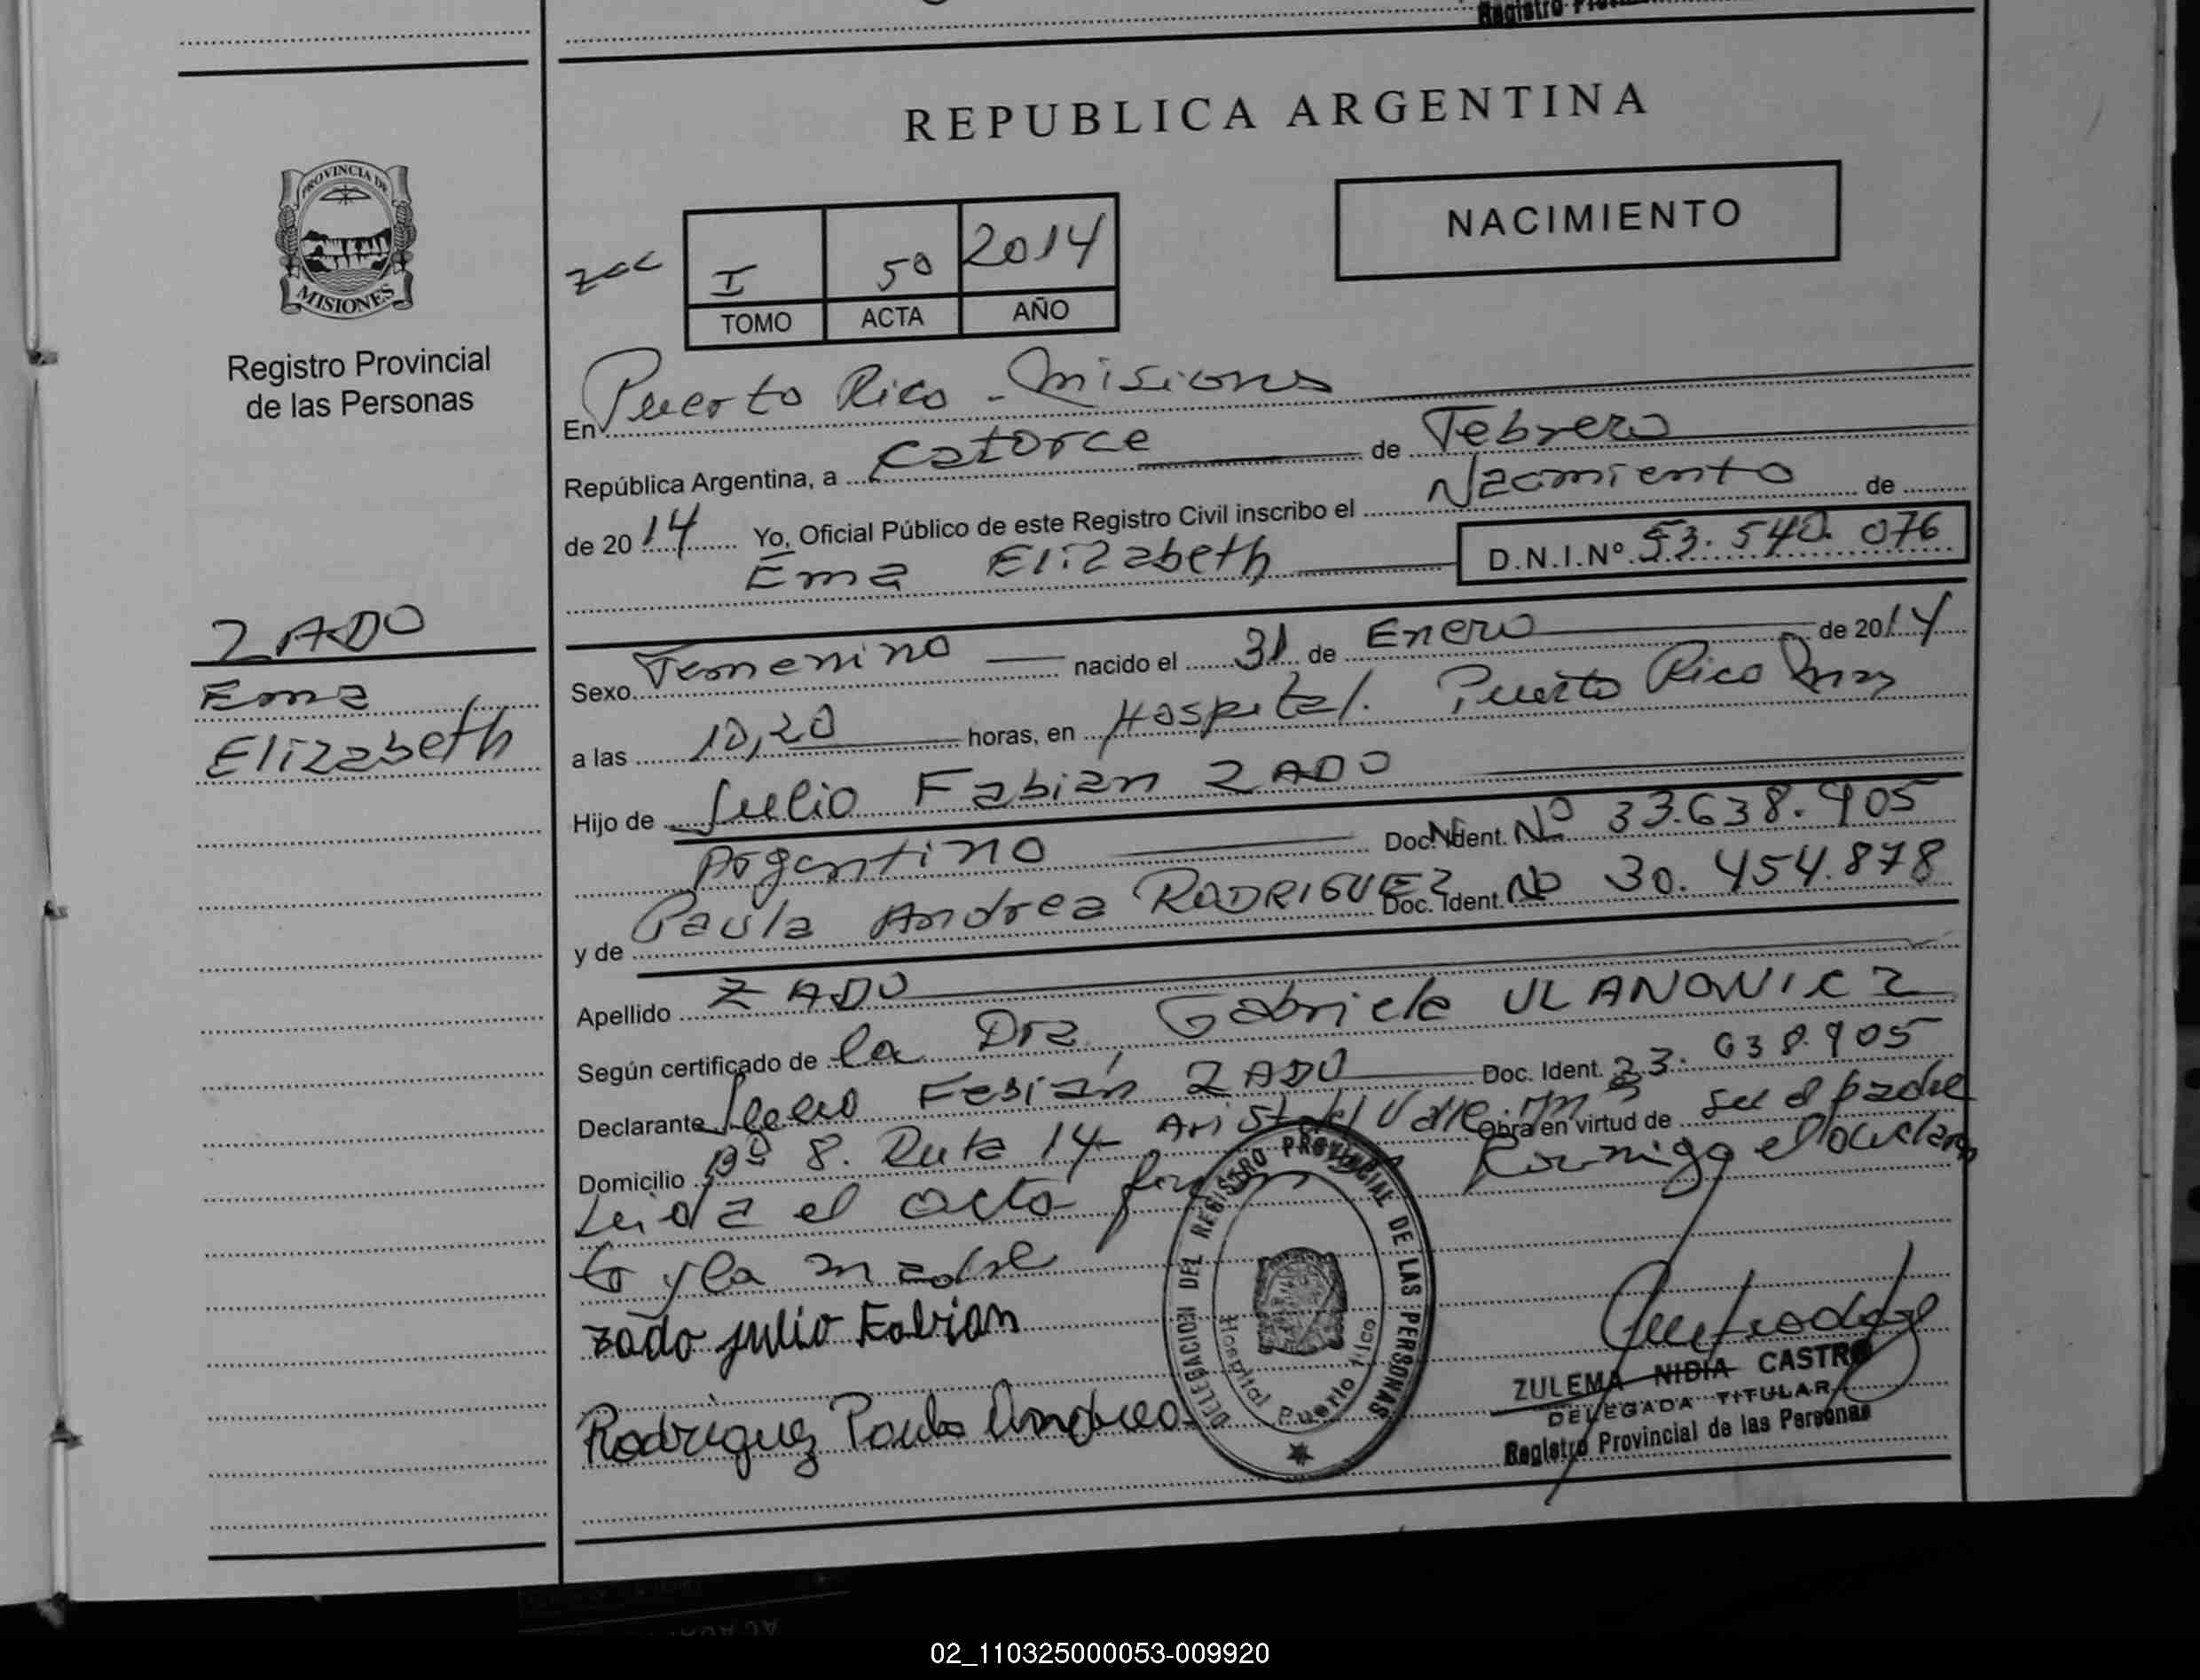 REPUBLICA ARGENTINA
NACIMIENTO
PROVINCIA DE
MISIONES
Registro Provincial
de las Personas
I 50 2014
TOMO ACTA AÑO
En Puerto Rico - Misiones
República Argentina, a Catorce de Febrero
de 2014 Yo, Oficial Público de este Registro Civil inscribo el Nacimiento de
Ema Elizabeth D.N.I.Nº 53.540.076
ZADO
Ema
Elizabeth
Sexo Femenino nacido el 31 de Enero de 2014
a las 10,20 horas, en Hospital. Puerto Rico Mnes
Hijo de Julio Fabian ZADO
Argentino Doc. Ident. Nº 33.638.905
y de Paula Andrea RODRIGUEZ Doc. Ident. Nº 30.454.878
Apellido ZADO
Según certificado de la Dra, Gabriela ULANOWICZ
Declarante Julio Fabián ZADO Doc. Ident. 33.638.905
Domicilio Bº 8. Ruta 14 Arist del Valle. Mns Obra en virtud de ser el padre
Leida el acta firman conmigo el declaran
te y la madre
zado julio Fabian
Rodriguez Paula Andrea
DELEGACION DEL REGISTRO PROVINCIAL DE LAS PERSONAS
Hospital Puerto Rico
ZULEMA NIDIA CASTRO
DELEGADA TITULAR
Registro Provincial de las Personas
02_110325000053-009920